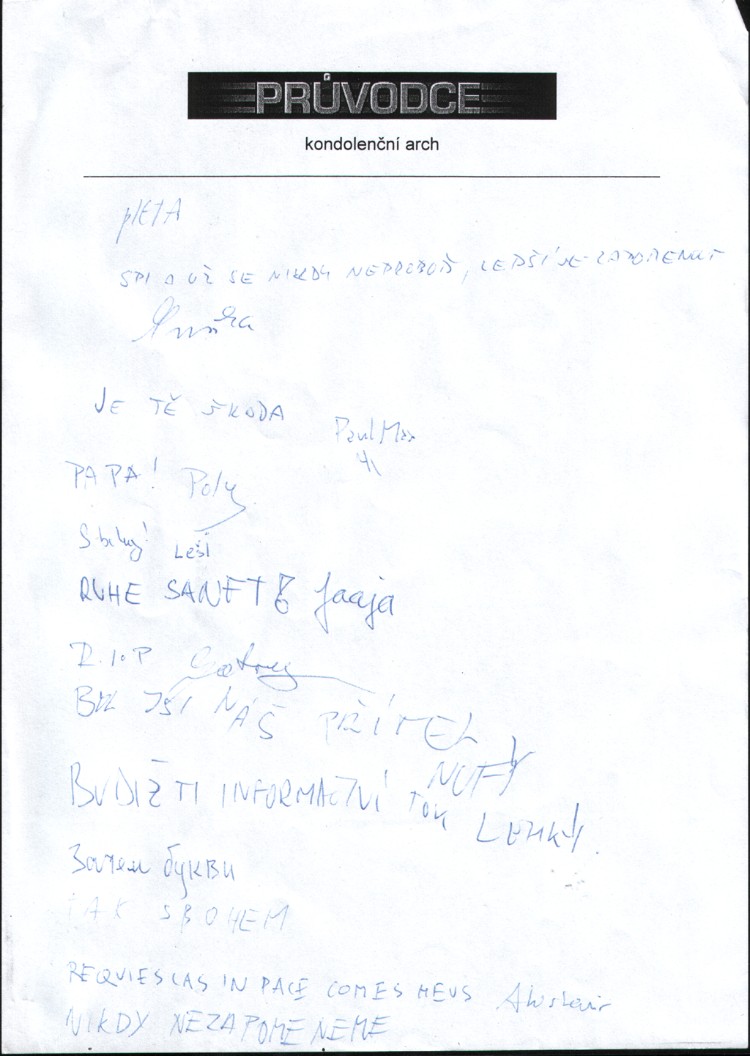 PRŮVODCE
kondolenční arch
pIETA
SPI A UŽ SE NIKDY NEPROBOŮ, LEPŠÍ JE ZAPOMENOUT
JE TĚ ŠKODA PaulMax
PAPA! Poly
Sbohy! Leši
RUHE SANFTE Jaaja
R.I.P
BYL JSI NÁŠ PŘÍTEL
NUFY
BUDIŽ TI INFORMAČNÍ TOK LEHKÝ
Зачем буквы
TAK SBOHEM
REQUIESCAS IN PACE COMES MEUS Alustair
NIKDY NEZAPOMENEME